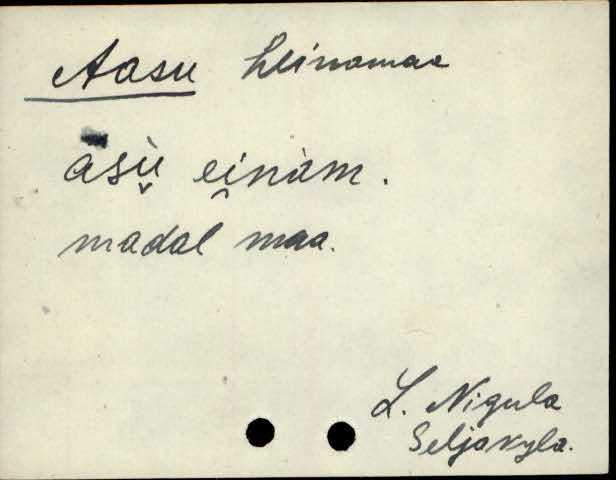 Aasu heinamaa
asù einàm.
madal maa.
L. Nigula
Seljakyla.